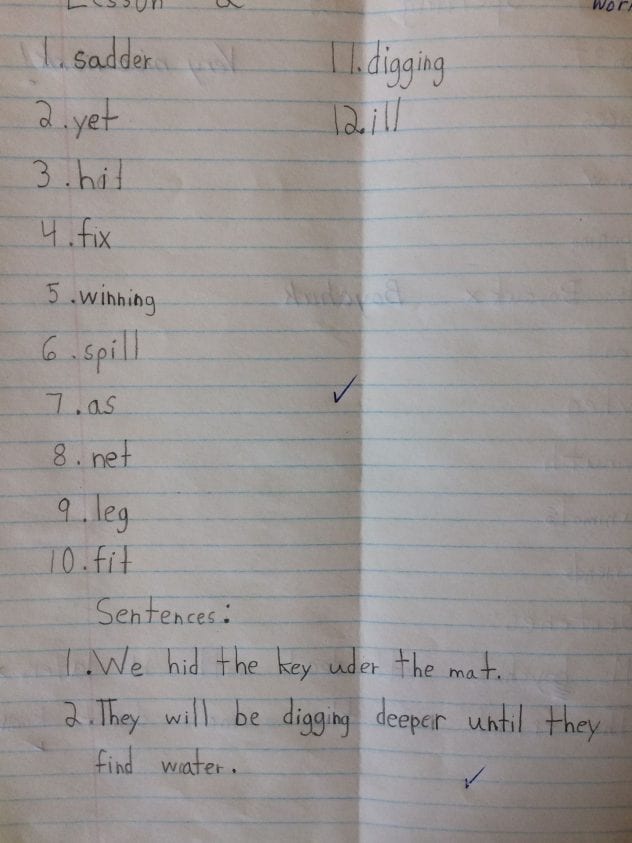 Lesson 2
1. sadder
2. yet
3. hit
4. fix
5. winning
6. spill
7. as
8. net
9. leg
10. fit
11. digging
12. ill
Sentences:
1. We hid the key uder the mat.
2. They will be digging deeper until they
find water.